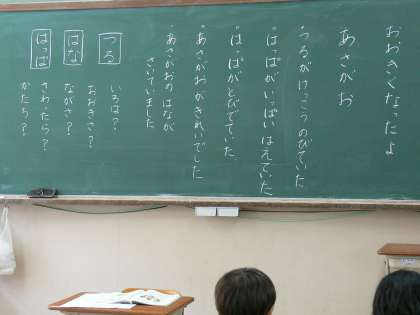 おおきくなったよ
あさがお
・つるがけっこうのびていた
・はっぱがいっぱいはえていた
・はっぱがとびでていた
・あさがおがきれいでした
・あさがおのはなが
さいていました
つる
はな
はっぱ
いろは？
おおきさ？
ながさ？
さわったら？
かたち？